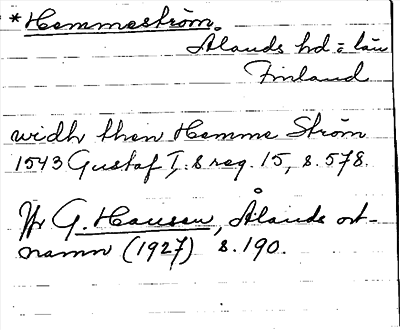 *Hemmeström.
Ålands hd = län
Finland
widh then Hemme Ström
1543 Gustaf I:s reg. 15, s. 578.
Jfr G. Hausen, Ålands ort-
namn (1927) s. 190.